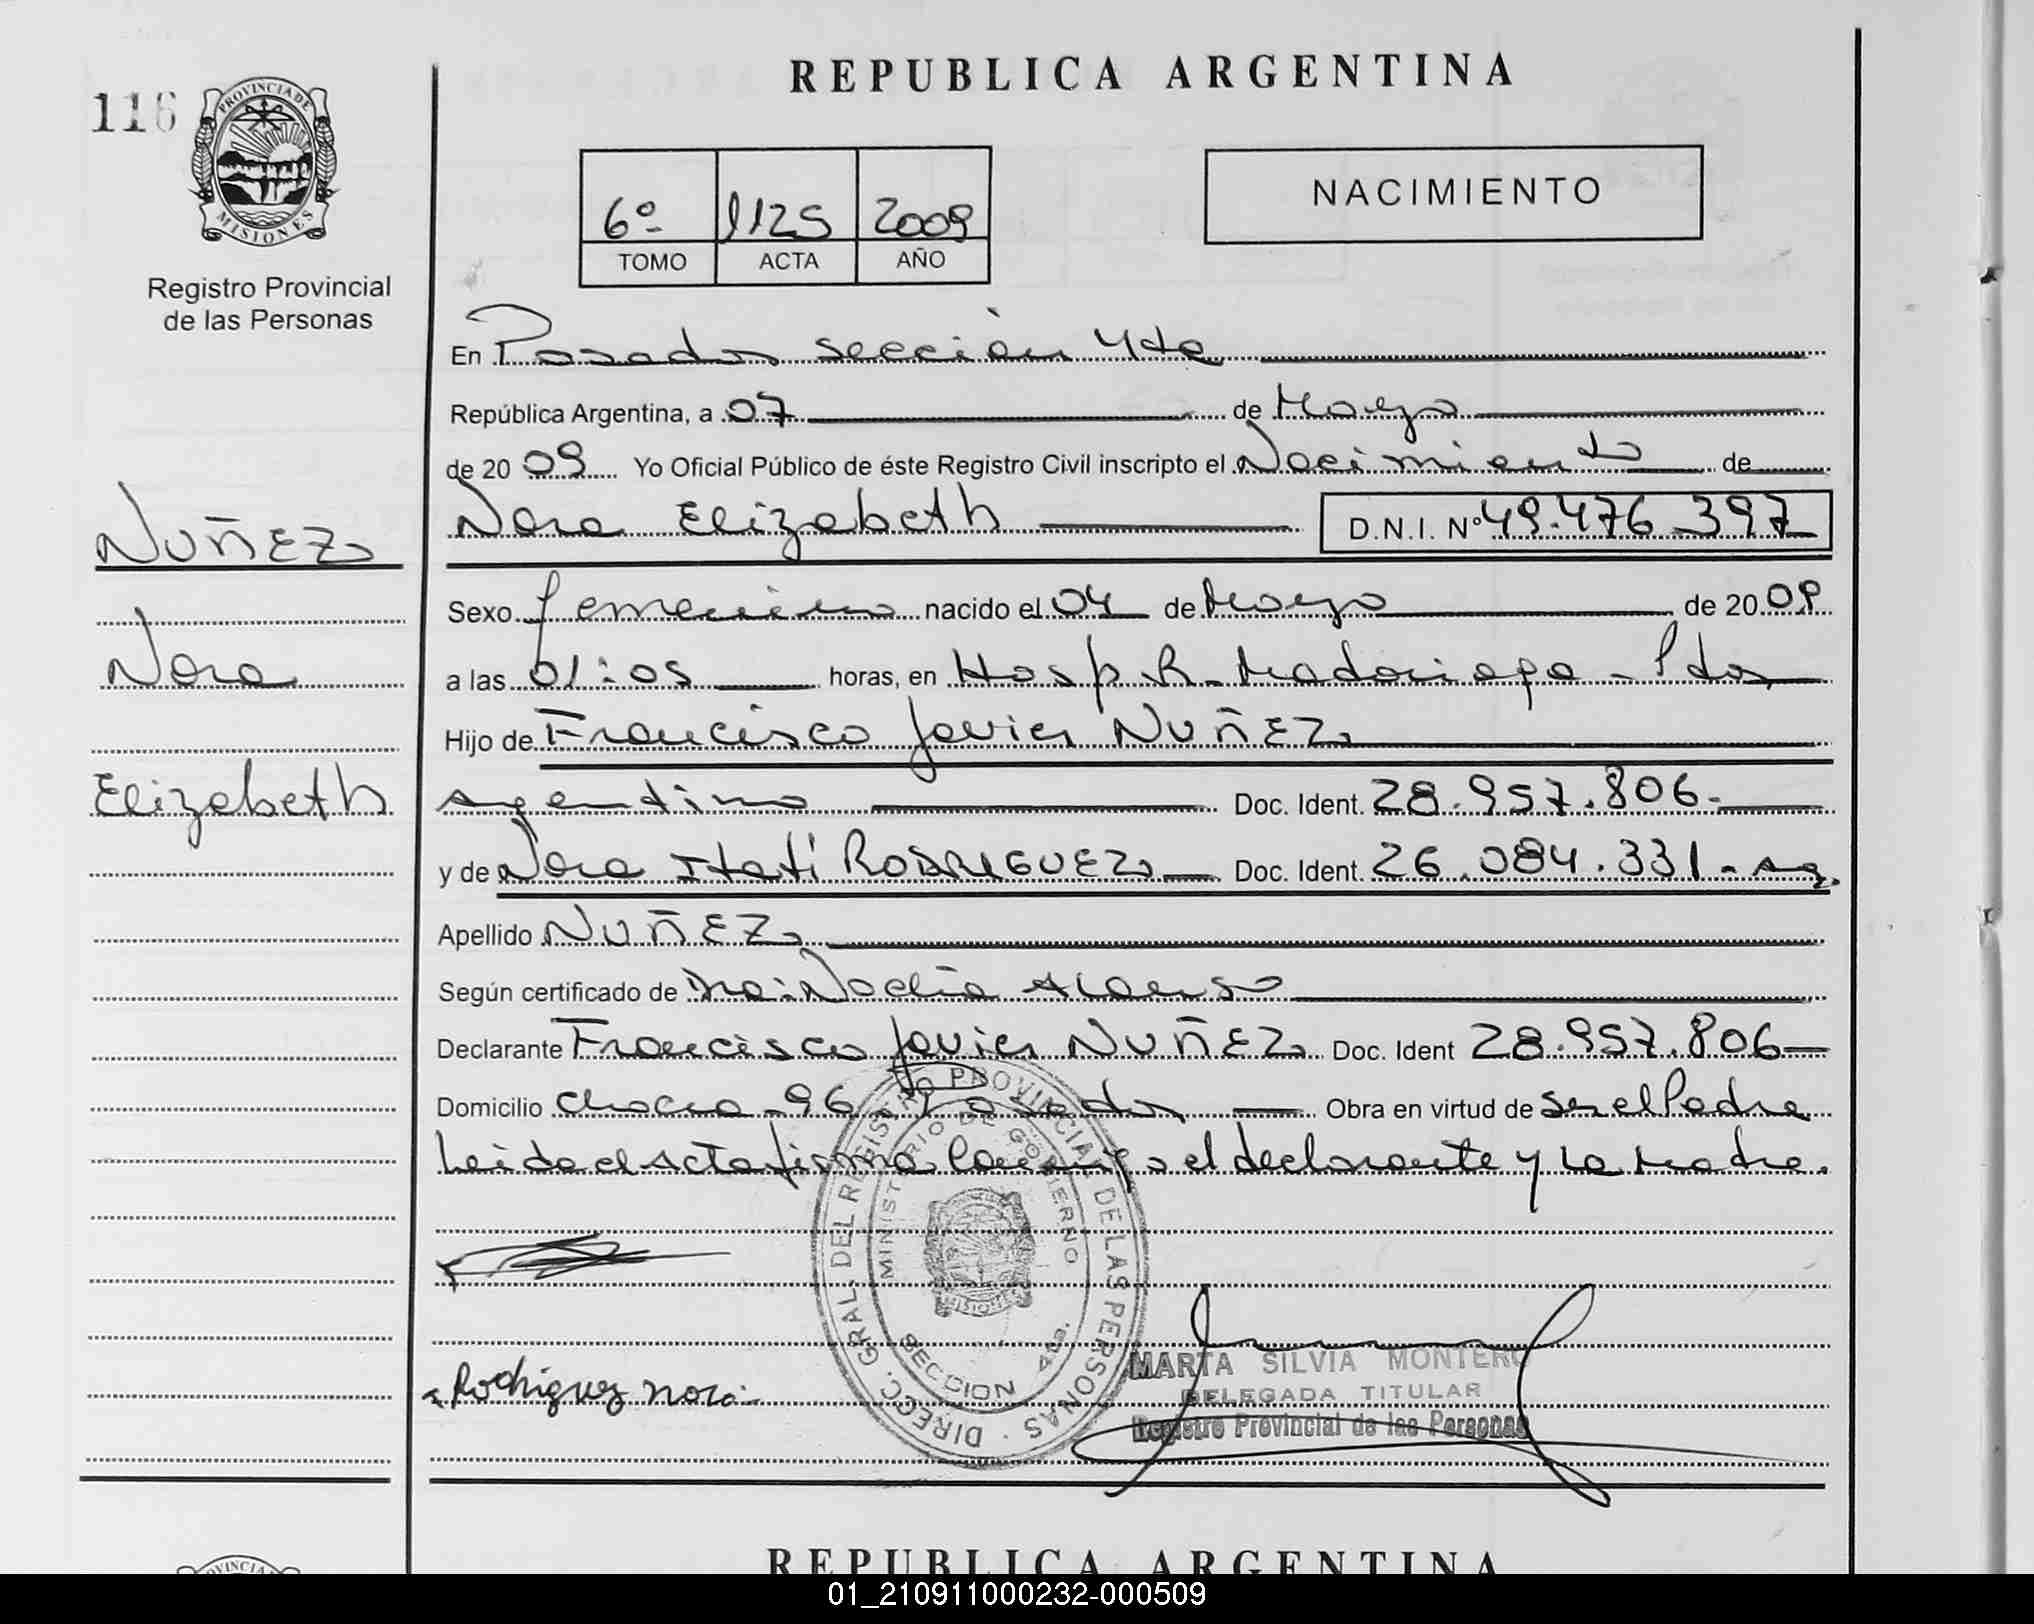 116
PROVINCIA DE
MISIONES
Registro Provincial
de las Personas
REPUBLICA ARGENTINA
6º 1125 2009
TOMO ACTA AÑO
NACIMIENTO
En Posadas sección 4ta
República Argentina, a 07 de Mayo
de 20 09 Yo Oficial Público de éste Registro Civil inscripto el Nacimiento de
Nora Elizabeth D.N.I. Nº 49.476.397
NUÑEZ
Nora
Elizabeth
Sexo femenino nacido el 04 de Mayo de 20 09
a las 01:05 horas, en Hosp. R. Madariaga - Pdas
Hijo de Francisco Javier NUÑEZ
argentino Doc. Ident. 28.957.806.
y de Nora Itatí RODRIGUEZ Doc. Ident. 26.084.331 - arg.
Apellido NUÑEZ
Según certificado de Dra: Noelia Alonso
Declarante Francisco Javier NUÑEZ Doc. Ident 28.957.806
Domicilio chacra 96 Posadas Obra en virtud de ser el Padre
Leida el acta firma conmigo el declarante y la madre.
DIRECC. GRAL. DEL REGISTRO PROVINCIAL DE LAS PERSONAS
MINISTERIO DE GOBIERNO
MISIONES
SECCION 4ta.
Rodriguez nora
MARTA SILVIA MONTERO
DELEGADA TITULAR
Registro Provincial de las Personas
REPUBLICA ARGENTINA
01_210911000232-000509